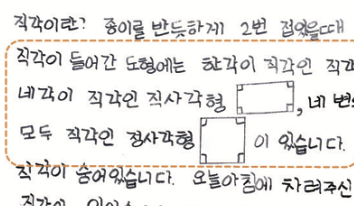 직각이란? 종이를 반듯하게 2번 접었을때
직각이 들어간 도형에는 한각이 직각인 직각
네각이 직각인 직사각형 , 네 변
모두 직각인 정사각형 이 있습니다.
직각이 숨어있습니다. 오늘아침에 차려주신